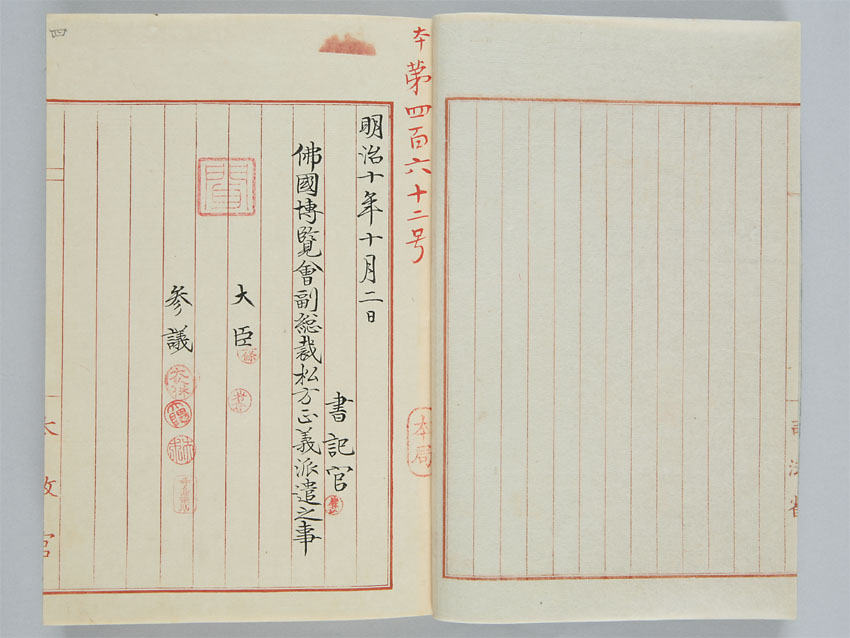 司法省
本第四百六十二号
本局
明治十年十月二日
書記官
佛國博覧會副総裁松方正義派遣之事
大臣
参議
太政官
四